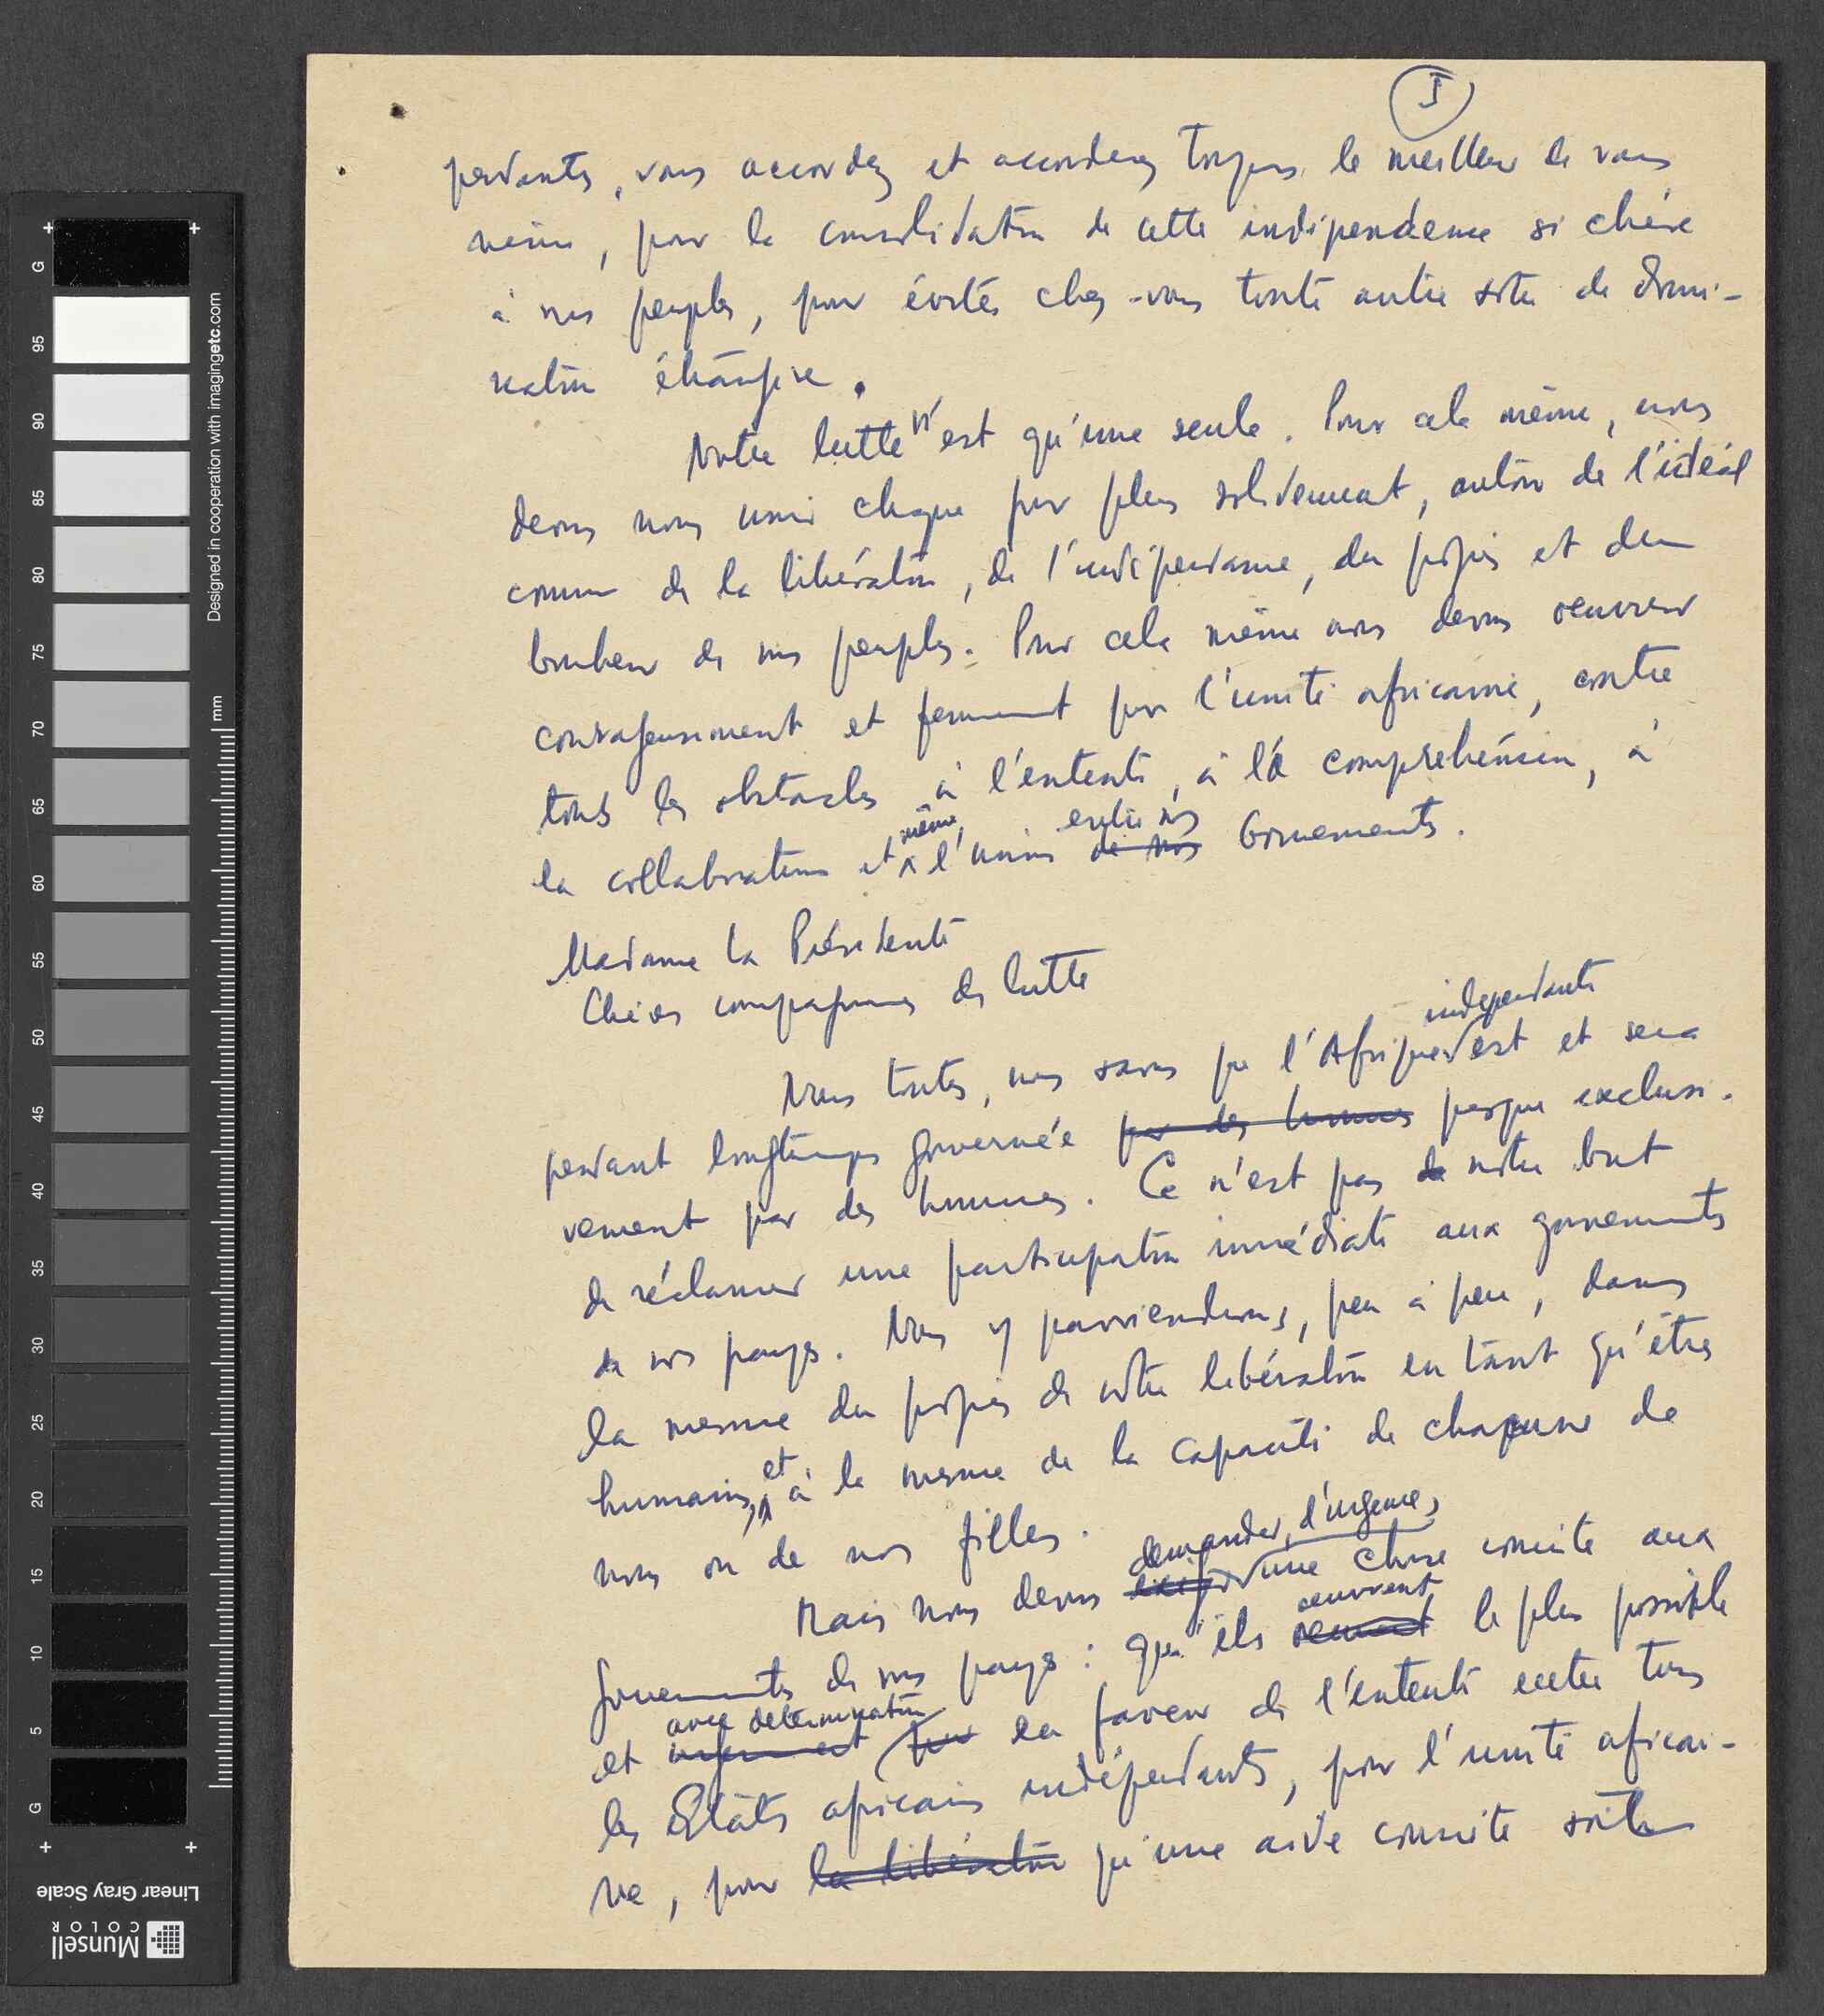 5
pendantes, vous accordez et accorderez toujours le meilleur de vous
même, pour la consolidation de cette indépendance si chère
à nos peuples, pour éviter chez-vous toute autre sorte de domi-
nation étrangère.
Notre lutte n'est qu'une seule. Pour cela même, nous
devons nous unir chaque jour plus solidement, autour de l'idéal
commun de la libération, de l'indépendance, du progrès et du
bonheur de nos peuples. Pour cela même nous devons oeuvrer
courageusement et fermement pour l'unité africaine, contre
tous les obstacles à l'entente, à la compréhension, à
la collaboration et même, l'union de nos entre nos Gouvernements.
Madame la Présidente
Chères compagnes de lutte
Nous toutes, nous savons que l'Afrique indépendante est et sera
pendant longtemps gouvernée par des hommes presque exclusi-
vement par des hommes. Ce n'est pas de notre but
de réclamer une participation immédiate aux gouvernements
de nos pays. Nous y parviendrons, peu à peu, dans
la mesure du progrès de notre libération en tant qu'êtres
humains, et à la mesure de la capacité de chacune de
nous ou de nos filles.
Mais nous devons exiger demander, d'urgence, une chose concrète aux
gouvernements de nos pays : qu'ils oeuvrent le plus possible
et avec détermination pour en faveur de l'entente entre tous
les Etats africains indépendants, pour l'unité africai-
ne, pour la libération qu'une aide concrète soit